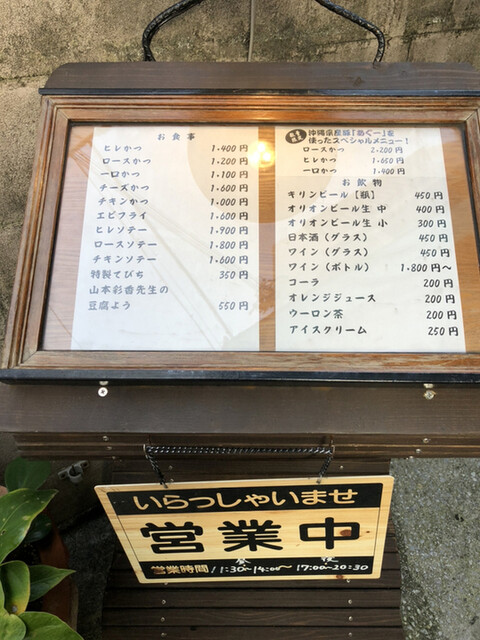 お食事
ヒレかつ 1.400円
ロースかつ 1.200円
一口かつ 1.100円
チーズかつ 1.600円
チキンかつ 1.000円
エビフライ 1.600円
ヒレソテー 1.900円
ロースソテー 1.800円
チキンソテー 1.600円
特製てびち 350円
山本彩香先生の
豆腐よう 550円
沖縄県産豚「あぐー」を
使ったスペシャルメニュー！
ロースかつ 2.200円
ヒレかつ 1.650円
一口かつ 1.400円
お飲物
キリンビール【瓶】 450円
オリオンビール生 中 400円
オリオンビール生 小 300円
日本酒（グラス） 450円
ワイン（グラス） 450円
ワイン（ボトル） 1.800円～
コーラ 200円
オレンジジュース 200円
ウーロン茶 200円
アイスクリーム 250円
いらっしゃいませ
営業中
昼 夜
営業時間 11:30～14:00～ 17:00～20:30